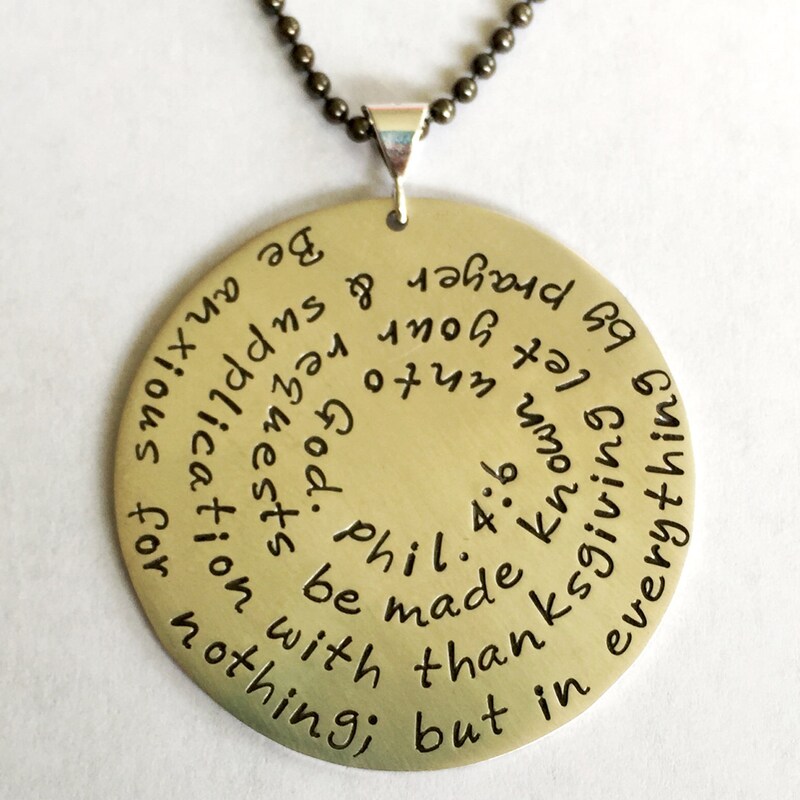 Be anxious for nothing; but in everything by prayer & supplication with thanksgiving let your requests be made known unto God. phil. 4:6